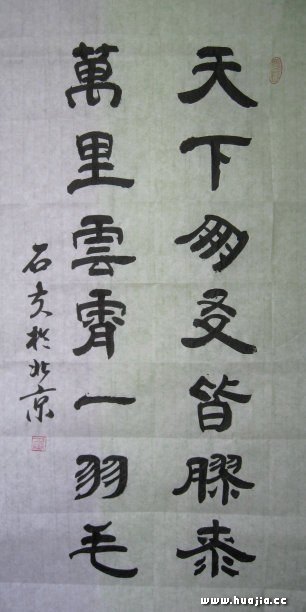 天下朋友皆膠桼
萬里雲霄一羽毛
石 於北京
www.huajia.cc